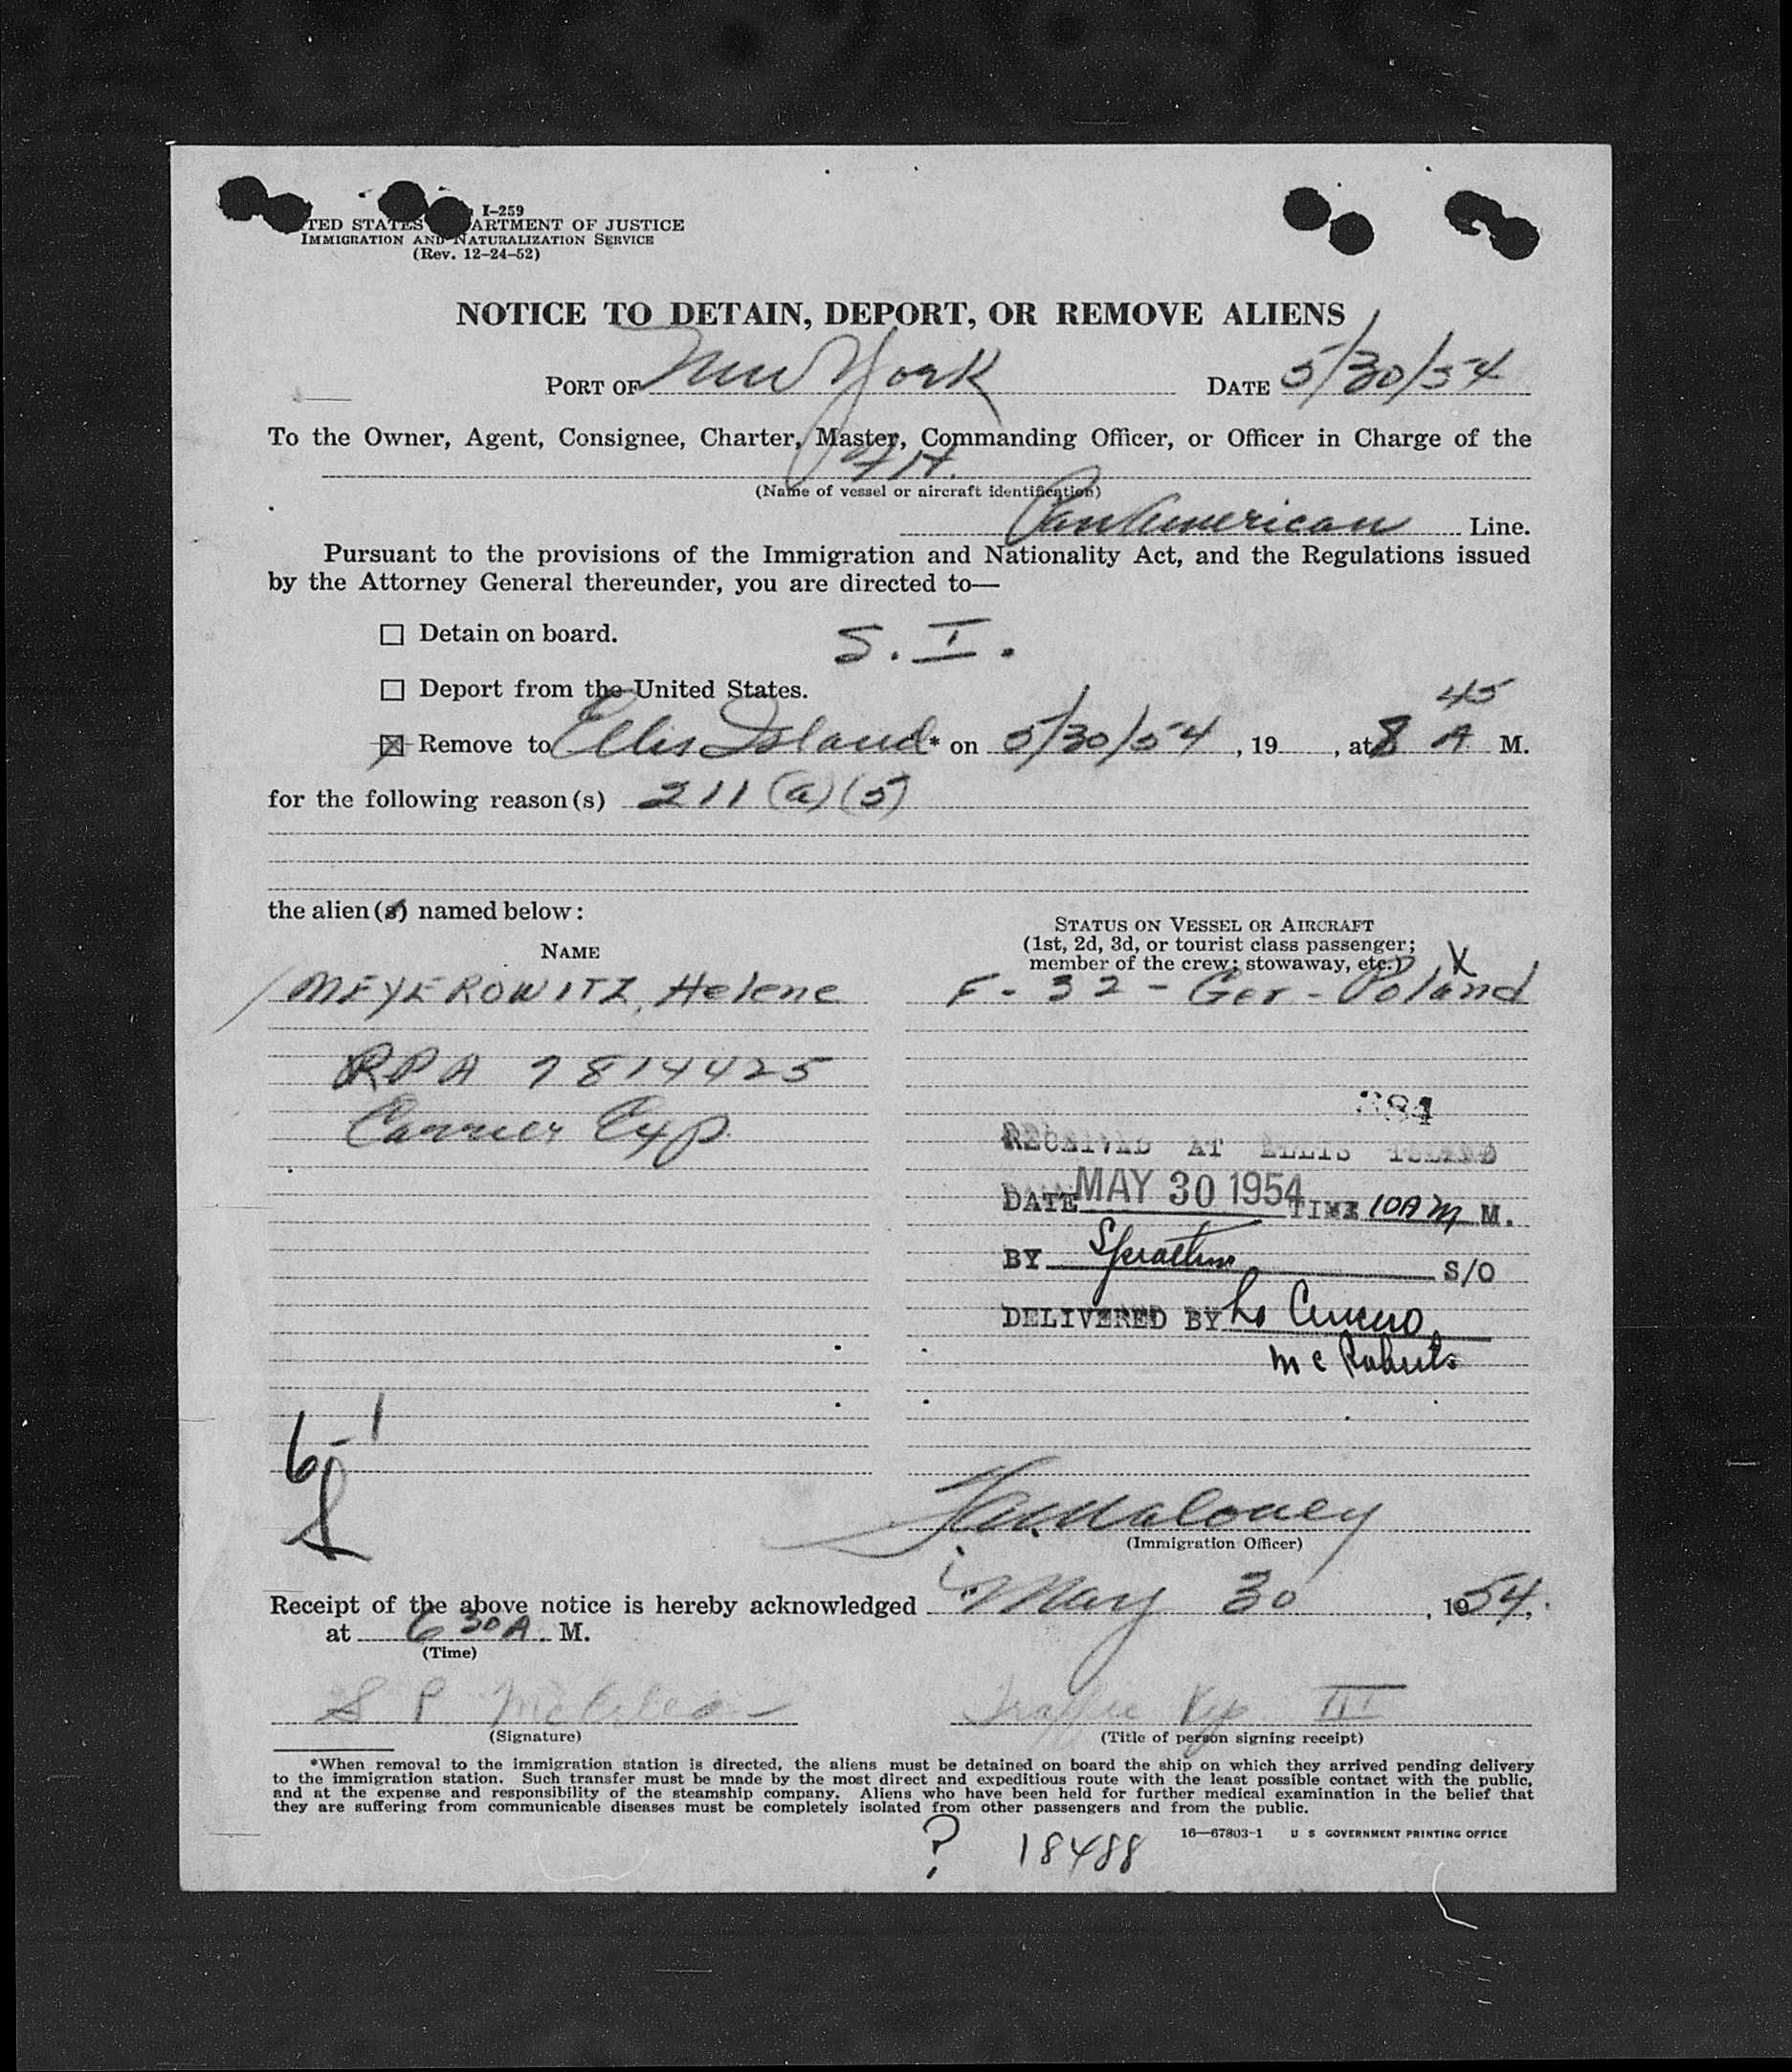 I-259
TED STATES ARTMENT OF JUSTICE
IMMIGRATION AND NATURALIZATION SERVICE
(Rev. 12-24-52)
NOTICE TO DETAIN, DEPORT, OR REMOVE ALIENS
PORT OF New York DATE 5/30/54
To the Owner, Agent, Consignee, Charter, Master, Commanding Officer, or Officer in Charge of the
(Name of vessel or aircraft identification)
Pan American Line.
Pursuant to the provisions of the Immigration and Nationality Act, and the Regulations issued
by the Attorney General thereunder, you are directed to—
☐ Detain on board.
S. I.
☐ Deport from the United States.
☒ Remove to Ellis Island * on 5/30/54, 19 , at 8 45 A M.
for the following reason(s) 211 (a) (5)
the alien(s) named below:
NAME
STATUS ON VESSEL OR AIRCRAFT
(1st, 2d, 3d, or tourist class passenger;
member of the crew; stowaway, etc.) X
MEYEROWITZ, Helene F - 32 - Ger - Poland
RPA 7814425
Carrier Exp.
384
RECEIVED AT ELLIS ISLAND
DATE MAY 30 1954 TIME 10AM M.
BY S/O
DELIVERED BY Lo
Mc Roberts
6-1
Maloney
(Immigration Officer)
Receipt of the above notice is hereby acknowledged May 30, 1954.
at 6 30 A. M.
(Time)
S P
Traffic III
(Signature)
(Title of person signing receipt)
*When removal to the immigration station is directed, the aliens must be detained on board the ship on which they arrived pending delivery
to the immigration station. Such transfer must be made by the most direct and expeditious route with the least possible contact with the public,
and at the expense and responsibility of the steamship company. Aliens who have been held for further medical examination in the belief that
they are suffering from communicable diseases must be completely isolated from other passengers and from the public.
16—67803-1 U S GOVERNMENT PRINTING OFFICE
? 18488